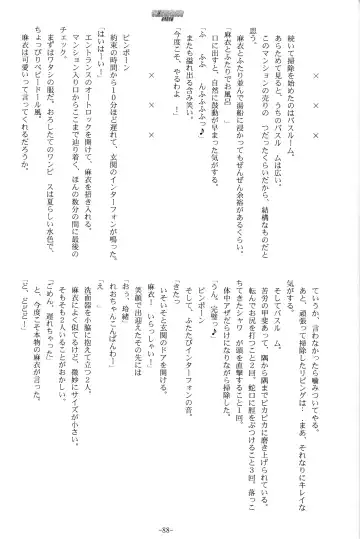 × × ×
続いて掃除を始めたのはバスルーム。
あらためて見ると、うちのバスルームは広い。
このマンションの売りの一つだったくらいだから、結構なものだと
思う。
麻衣とふたり並んで湯船に浸かってもぜんぜん余裕があるくらい。
『麻衣とふたりでお風呂』
口に出すと、自然に鼓動が早まった気がする。
「ふ ふふ んふふふふっ♪」
またも溢れ出る含み笑い。
「今度こそ、やるわよ ー!」
× × ×
ピンポーン
約束の時間から10分ほど遅れて、玄関のインターフォンが鳴った。
「はいはーい!」
エントランスのオートロックを開けて、麻衣を招き入れる。
マンション入り口からここまで辿り着く、ほんの数分の間に最後の
チェック。
まずはワタシの服。おろしたてのワンピースは夏らしい水色で、
ちょっぴりベビードール風。
麻衣は可愛いって言ってくれるだろうか。
ていうか、言わなかったら噛みついてやる。
あと、頑張って掃除したリビングは…まあ、それなりにキレイな
気がする。
そしてバスルーム。
苦労の甲斐あって、隅から隅までピカピカに磨き上げられている。
転んでお尻を打つこと2回。蛇口に腕をぶつけること3回。落っこ
ちてきたシャワーが頭を直撃すること1回。
体中アザだらけになりながら掃除した。
「うん、完璧っ♪」
ピンポーン
そして、ふたたびインターフォンの音。
「きたっ」
いそいそと玄関のドアを開ける。
「麻衣!いらっしゃい!」
笑顔で出迎えたその先には
「おっす、
れおちゃんこんばんわー!」
「え」
洗面器を小脇に抱えて立つ2人。
麻衣によく似てるけど、微妙にサイズが小さい。
そもそも2人いることがおかしい。
「ごめん、遅れちゃった」
と、今度こそ本物の麻衣が言った。
-88-